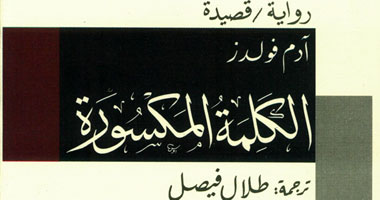 رواية/قصيدة
آدم فولدز
الكَلِمَةُ المَكسُورَة
ترجمة: طلال فيصل